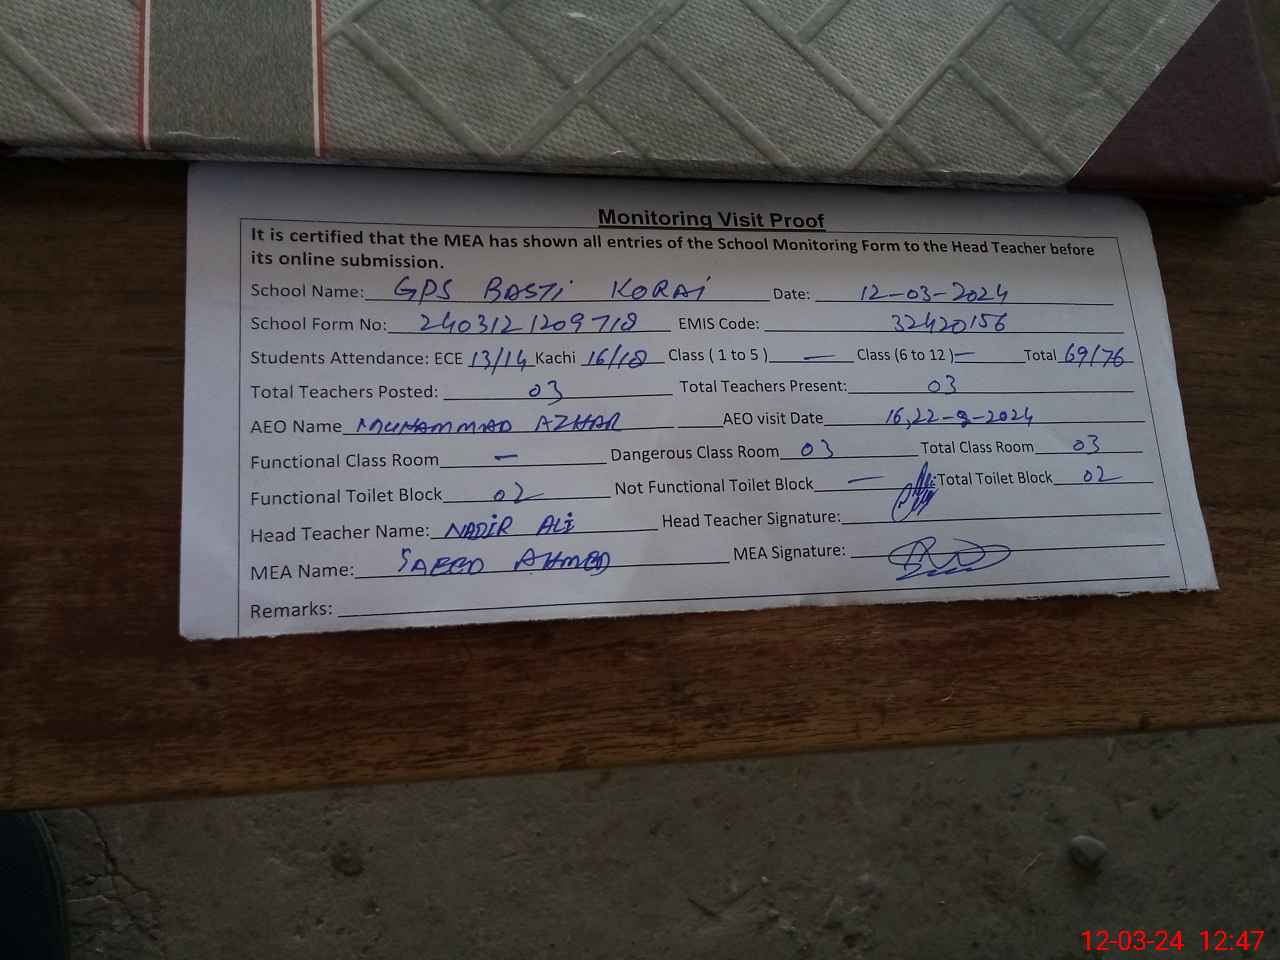 Monitoring Visit Proof
It is certified that the MEA has shown all entries of the School Monitoring Form to the Head Teacher before
its online submission.
School Name: GPS BASTi KORAi Date: 12-03-2024
School Form No: 2403121209718 EMIS Code: 32420156
Students Attendance: ECE 13/14 Kachi 16/18 Class ( 1 to 5 ) — Class (6 to 12 ) — Total 69/76
Total Teachers Posted: 03 Total Teachers Present: 03
AEO Name MUHAMMAD AZHAR AEO visit Date 16,22-2-2024
Functional Class Room — Dangerous Class Room 03 Total Class Room 03
Functional Toilet Block 02 Not Functional Toilet Block — Total Toilet Block 02
Head Teacher Name: NADIR ALi Head Teacher Signature:
MEA Name: SAEED AHMED MEA Signature:
Remarks:
12-03-24 12:47